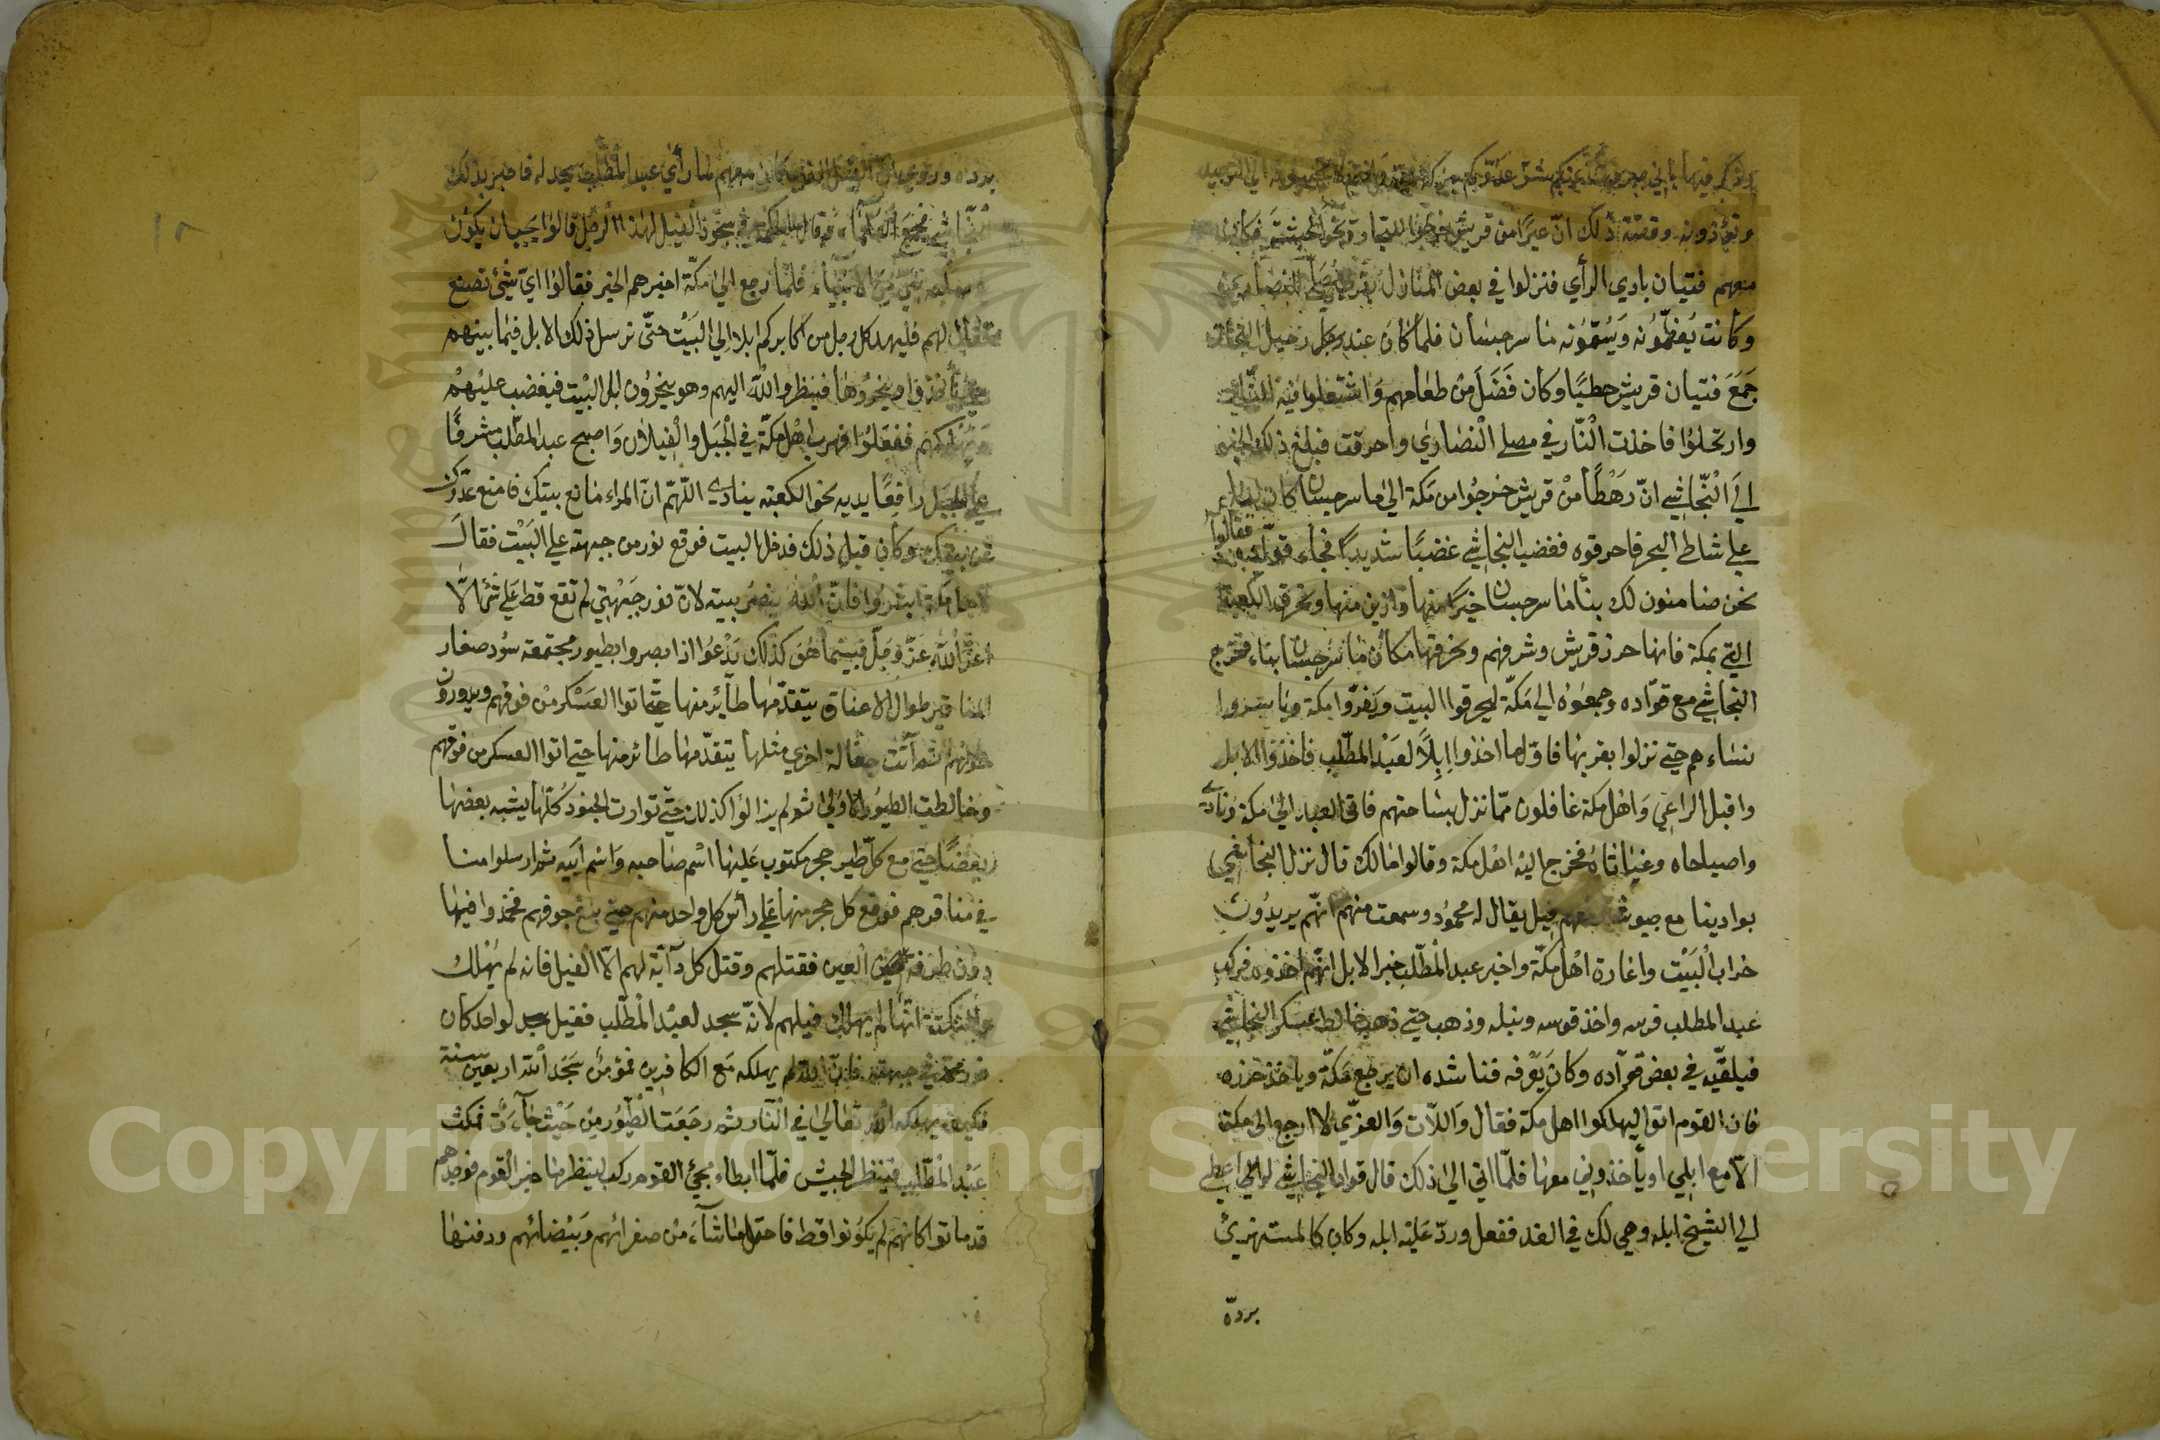 وتؤذونه وقصّة ذلك انّ عيرًا من قريش خرجوا للتجارة نحو الحبشة فكان
معهم فتيان بادي الرأي فنزلوا في بعض المنازل بقرب مصلّى للنصارى
وكانت يعظّمونه ويسمّونه ماسرجسان فلما كان عند رحيل القافلة
جمع فتيان قريش حطبًا وكان فضل من طعامهم واشتعلوا فيه النار
وارتحلوا فاخذت النّار في مصلى النصارى واحرقت فبلغ ذلك الخبر
الى النّجاشي انّ رهطًا من قريش خرجوا من مكة الى ماسرجسان كان
على شاطئ البحر فاحرقوه فغضب النجاشي غضبًا شديدًا فجاء قوّاده فقالوا
نحن ضامنون لك بنأ ماسرجسان خيرًا منها وازين منها ونحرق الكعبة
التي بمكة فانها حرز قريش وشرفهم ونحرقها مكان ماسرجسان بناء فخرج
النجاشي مع قوّاده وجمعوه الى مكّة ليحرقوا البيت ويغزوا مكة ويأسروا
نساءهم حتى نزلوا بقربها فاوّل ما اخذوا إبلًا لعبد المطّلب فاخذوا الابل
واقبل الراعي واهل مكة غافلون ممّا نزل بساحتهم فاتى العبد الى مكة ونادى
واصباحاه وغيّاثاه فخرج اليه اهل مكة وقالوا مالك قال نزل النجاشي
بوادينا مع جيوش معهم فيل يقال له محمود وسمعت منهم انّهم يريدون
خراب البيت واغارة اهل مكّة واخبر عبد المطّلب خبر الابل انهم اخذوه فركب
عبد المطلب فرسه واخذ قوسه ونبله وذهب حتى ذهب خالط عسكر النجاشي
فيلقيه في بعض قوّاده وكان يعرفه فناشده ان يرجع مكّة وياخذ حذره
فان القوم اتوا ليهلكوا اهل مكة فقال واللّات والعزّى لا ارجع الى مكة
الّا مع ابلي او يأخذوني معها فلمّا اتى الى ذلك قال قواد النجاشي لوالي اعطي
الى الشيخ ابله وهي لك في الغد ففعل وردّ عليه ابله وكان كالمستهزئ
بردّه
١٨
بردّه وروي انّ الفيل الذي كان معهم لما رأى عبد المطّلب سجد له فاخبر بذلك
النّجاشي فجمع العلماء وقال ما الحكمة في سجود الفيل لهذا الرجل قالوا يجب ان يكون
نبيّ من الانبياء فلمّا رجع الى مكّة اخبرهم الخبر فقالوا ايّ شيئ تصنع
فقال لهم فليهد كل رجل من اكابركم ابلا الى البيت حتّى نرسل ذلك الابل فيما بينهم
وينحروها فينظروا الله اليهم وهو ينحرون ابل البيت فيغضب عليهم
ويهلكهم ففعلوا فهرب اهل مكّة في الجبل والغيلان واصبح عبد المطّلب مشرفًا
على الجبل رافعًا يديه نحو الكعبة ينادي اللّهمّ انّ المراء مانع بيتك فامنع عدّوك
وكان قبل ذلك فدخل البيت فوقع نور من جبهته على البيت فقال
اهل مكة ابشروا فانّ الله ينصر بيته لانّ نور جبهتي لم تقع قط على شئ الّا
اعزّ الله عزّ وجلّ فبينما هو كذلك يدعوا اذا بصروا بطيور مجتمعة سود صغار
المناقير طوال الاعناق يتقدّمها طآئر منها حتّى اتوا العسكر من فوقهم ويدورون
حولهم ثم أتت جفالة اخرى مثلها يتقدّمها طائر منها حتى اتوا العسكر من فوقهم
وخالطت الطيور الاولى ثم لم يزالوا كذلك حتّى توارت الجنود كلّها يشبه بعضها
بعضًا حتى مع كلّ طير حجر مكتوب عليها اسم صاحبه واسم ابيه ثم ارسلوا منا
في مناقرهم فوقع كل حجر منها على رأس كل واحد منهم حتى بلغ جوفهم فخمدوا فيها
دون طرفة العين فقتلهم وقتل كل دآبّة لهم الّا الفيل فانه لم يهلك
والنكتة انّها لم يهلك فيلهم لانّه سجد لعبد المطّلب فقيل سجد لواحد كان
نور محمّد في جبهته فانّ الله لم يهلكه مع الكافرين فمؤمن سجد الله اربعين سنة
فكيف يهلكه الله تعالى في النّار ثم رجعت الطّيور من حيث جآءت فمكث
عبد المطّلب فينظر الجيش فلمّا ابطاء مجئ القوم ركب لينظر ما خبر القوم فوجدهم
قد ماتوا كانهم لم يكونوا قط فاحتمل ما شآء من صفرائهم وبيضائهم ودفنها
Copyright to King Saud University